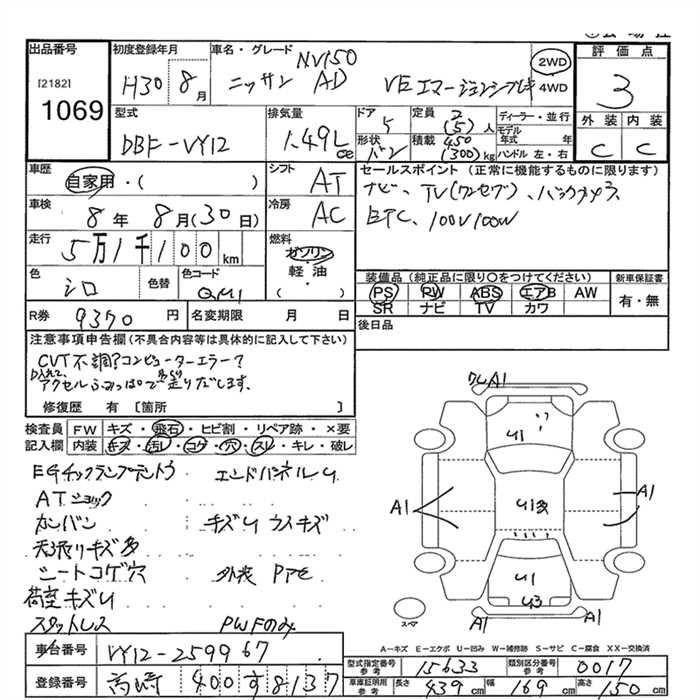 出品番号
[2182]
1069
初度登録年月
H30 8月
車名・グレード
NV150
ニッサン AD VEエマージェンシブレーキ
2WD
4WD
評価点
3
外装 内装
C C
型式
DBF-VY12
排気量
1.49L
cc
ドア
5
形状
バン
定員 2(5)人
積載 450(300)kg
ディーラー・並行
モデル年式 年
ハンドル 左・右
車歴
自家用・( )
シフト
AT
セールスポイント(正常に機能するものに限ります)
ナビ、TV(ワンセグ)、バックカメラ
ETC、100V100W
車検
8年 8月(30日)
冷房
AC
走行
5万1千100km
燃料
ガソリン
軽・油
( )
色
シロ
色替
色コード
QM1
装備品(純正品に限り○をつけてください)
PS PW ABS エアB AW
SR ナビ TV カワ
新車保証書
有・無
R券 9370円
名変期限 月 日
後日品
注意事項申告欄(不具合内容等は具体的に記入して下さい)
CVT不調?コンピューターエラー?
アクセルふみっぱで走りだします。
修復歴 有 [箇所 ]
検査員記入欄
FW キズ・飛石・ヒビ割・リペア跡・×要
内装 キズ・汚レ・コゲ・穴・スレ・キレ・破レ
EGチェックランプテントウ エンドパネルU
ATショック
カンバン キズU ウスキズ
天張リキズ多
シートコゲ穴 外装
荷室キズU
スタットレス PWFのみ
A1
U1
U1
A1
A1
U1
U3
A1
A1
スペア
A-キズ E-エクボ U-凹み W-補修跡 S-サビ C-腐食 XX-交換済
車台番号 VY12-259967
登録番号 高崎 400 す 8137
型式指定番号 参考 15633
類別区分番号 参考 0017
車庫証明用 参考 長さ 439cm 幅 169cm 高さ 150cm